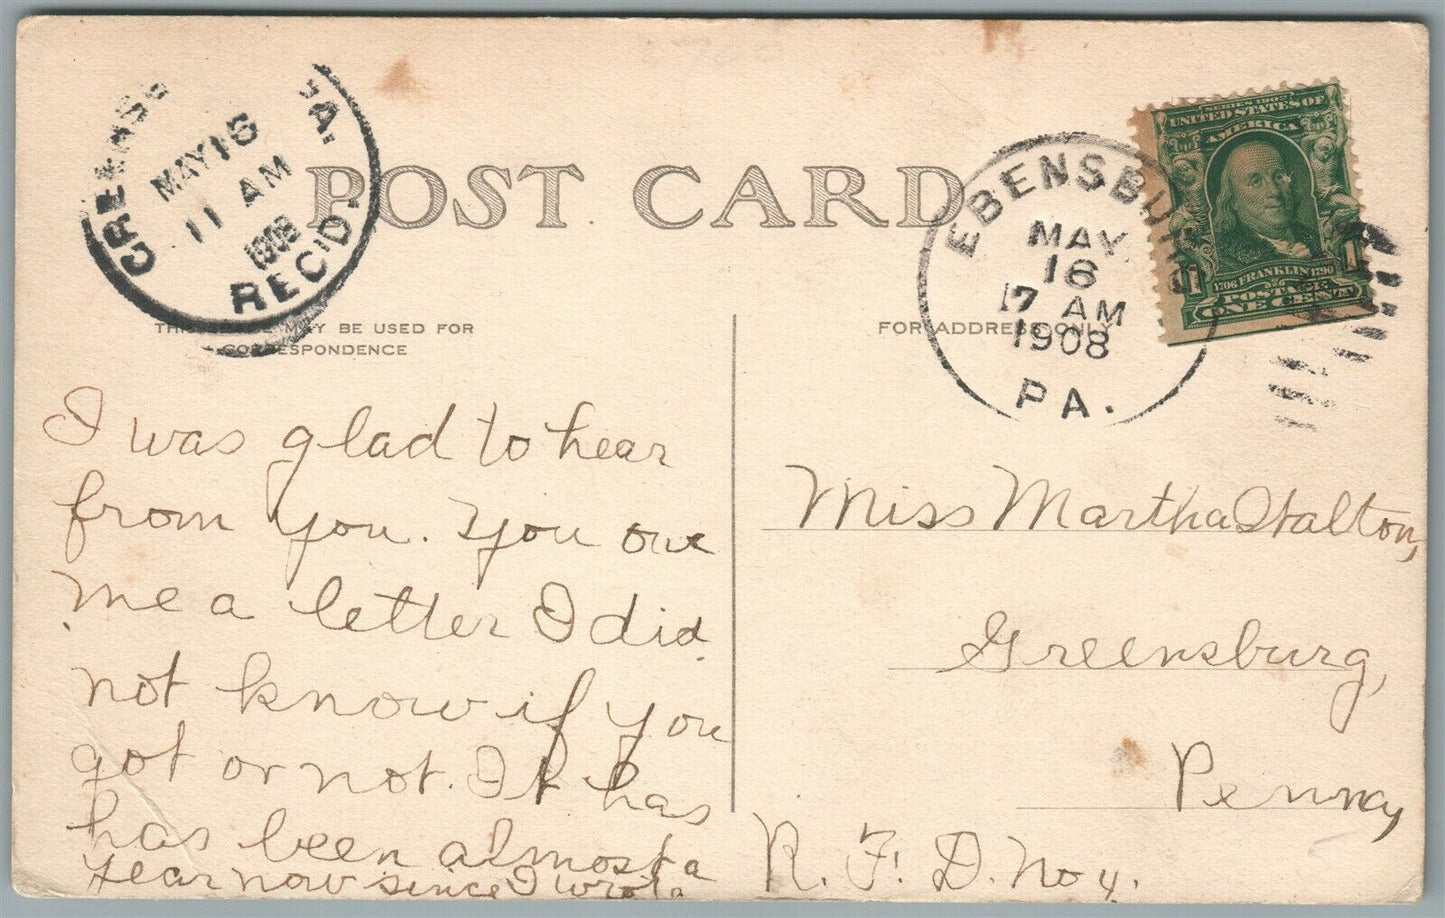 POST CARD
MAY 16
11 AM
1908
REC'D.
THIS SPACE MAY BE USED FOR
CORRESPONDENCE
FOR ADDRESS ONLY
EBENSBURG
MAY
16
7 AM
1908
PA.
SERIES 1902
UNITED STATES OF
AMERICA
1706 FRANKLIN 1790
POSTAGE
ONE CENT
I was glad to hear
from you. You owe
me a letter I did
not know if you
got or not. It has
has been almost a
year now since I wrote
Miss Martha Stalton,
Greensburg,
Penna,
R. F. D. No 4.